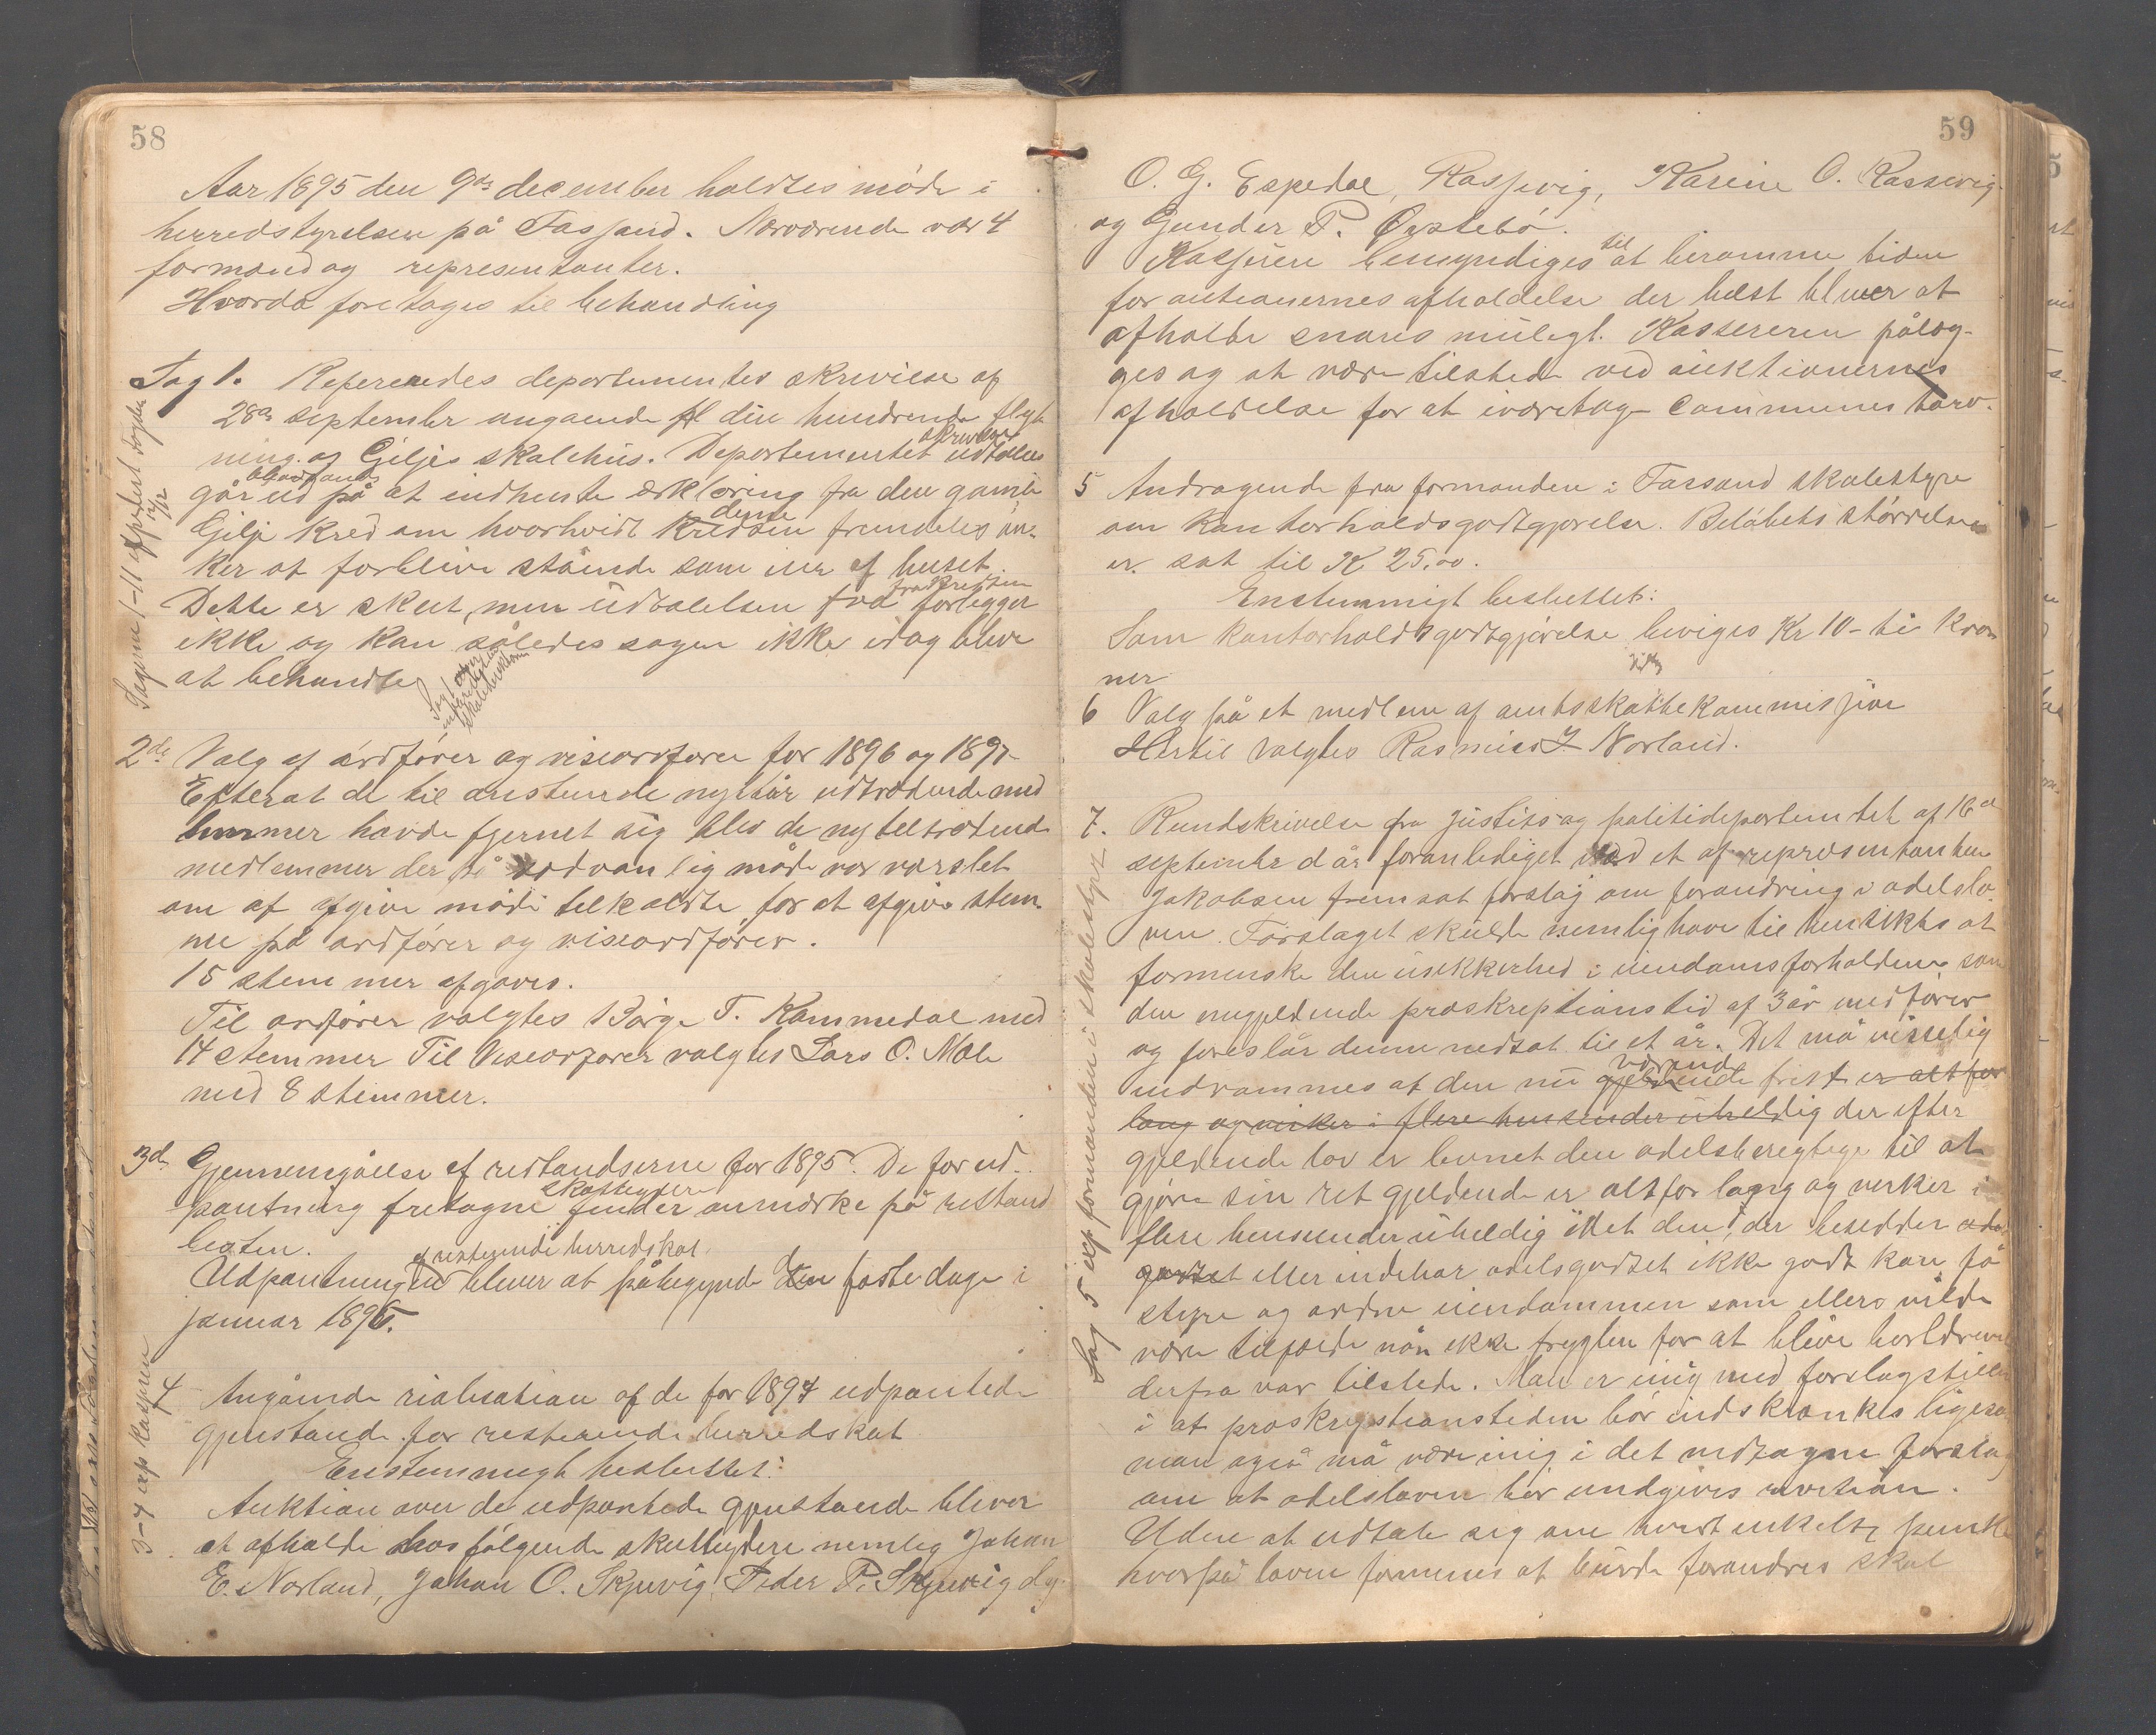 58
Aar 1895 den 9de december holdtes møde i
herredstyrelsen på Fossand. Nærværende var 4
formænd og representanter.
Hvorda foretages til behandling
Sag 1. Refereredes departementes skrivelse af
28de september angaende den hundrende flyt
ning af Giljes skolehus. Departementet skrivelse udtaleles
går ud på at indhente erklæring fra den gamle
Gilje kred om hvorhvidt denne kredsen fremdeles øn-
ker at forblive stående som eier af huset.
Dette er skeet, men udtalelsen fra fra kredsen forligger
ikke og kan således sagen ikke idag blive
at behandle
2de Valg af ordfører og viseordfører for 1896 og 1897
Efterat de til anstunde nytår udtrædende med
lemmer havde fjernet sig blev de nytiltrædende
medlemmer der på sedvanlig måde var varslet
om at afgive møde tilkaldte for at afgive stem
me på ordfører og viseordfører.
15 stemmer afgaves.
Til ordfører valgtes Børge T. Kommedal med
14 stemmer Til Viseorfører valgtes Lars O. Mele
med 8 stemmer.
3de Gjennemgåelse af restandserne for 1895. De for ud-
pantning fretagne skatteydere finder anmærke på restand
listen.
Udpantningen af resterende herredskat bliver at påbegynde den første dage i
januar 1896.
4 Angående rialisation af de for 1894 udpantede
gjenstande for resterende herredskat
Enstemmigt besluttet:
Auktion over de udpantede gjenstande bliver
at afholde hos følgende skatteydere nemlig Johan
E. Norland, Johan O. Skjevig, Peder P. Skjævig
Sagerne 1-11 expedert 12/12
3-4 exp kasseren
59
O. G. Espedal, Rassevig, Karine O. Rassevig
og Gunder P. Østebø.
Kasseren bemyndiges til at beramme tiden
for auktionernes afholdelse der helst bliver at
afholde snares muligt. Kassereren pålæg-
ges og at være tilstede ved auktionernes
afholdelse for at ivaretage communes tarv.
5 Andragende fra formanden i Fossand skolestyre
om kontorholdsgodtgjørelse. Beløbets størrelse
er sat til K 25,00.
Enstemmigt besluttet:
Som kontorholdsgodtgjørelse beviges Kr 10- ti kro
ner
6 Valg på et medlem af amtsskattekommisjon
Hertil valgtes Rasmus I Norland.
7. Rundskrivelse fra justits og politidepartemtet af 16de
september d år foranlediget ved et af representanten
Jakobsen fremsat forslag om forandring i odelslo
ven. Forslaget skulde nemlig have til hensikts at
forminske den usikkerhed i eiendomsforholdene som
den nugjeldende præskreptionstid af 3 år medfører
og foreslår denne nedsat til et år. Det må visselig
indrømmes at den nu værende gjeldende frist er altfor
lang og virker i flere hensender uheldig der efter
gjeldende lov er levnet den odelsberegtige til at
gjøre sin ret gjeldende er altfor lang og verker i
flere hensender uheldig idet den, der besedder odels
godset eller indehar odelsgodset ikke godt kan få
styre og ordne eiendommen som ellers vilde
være tilfælde når ikke frygten for at blive bortdreven
derfra var tilstede. Man er enig med forslagstiller
i at præskreptionstiden bør indskrænkes ligesom
man også må være enig i det medtagne forslag
om at odelsloven bør undgives revision.
Uden at udtale sig om hvert enkelte punkt
hvorpå loven formenes at burde forandres skal
Sag 5 exp formanden i skolestyre